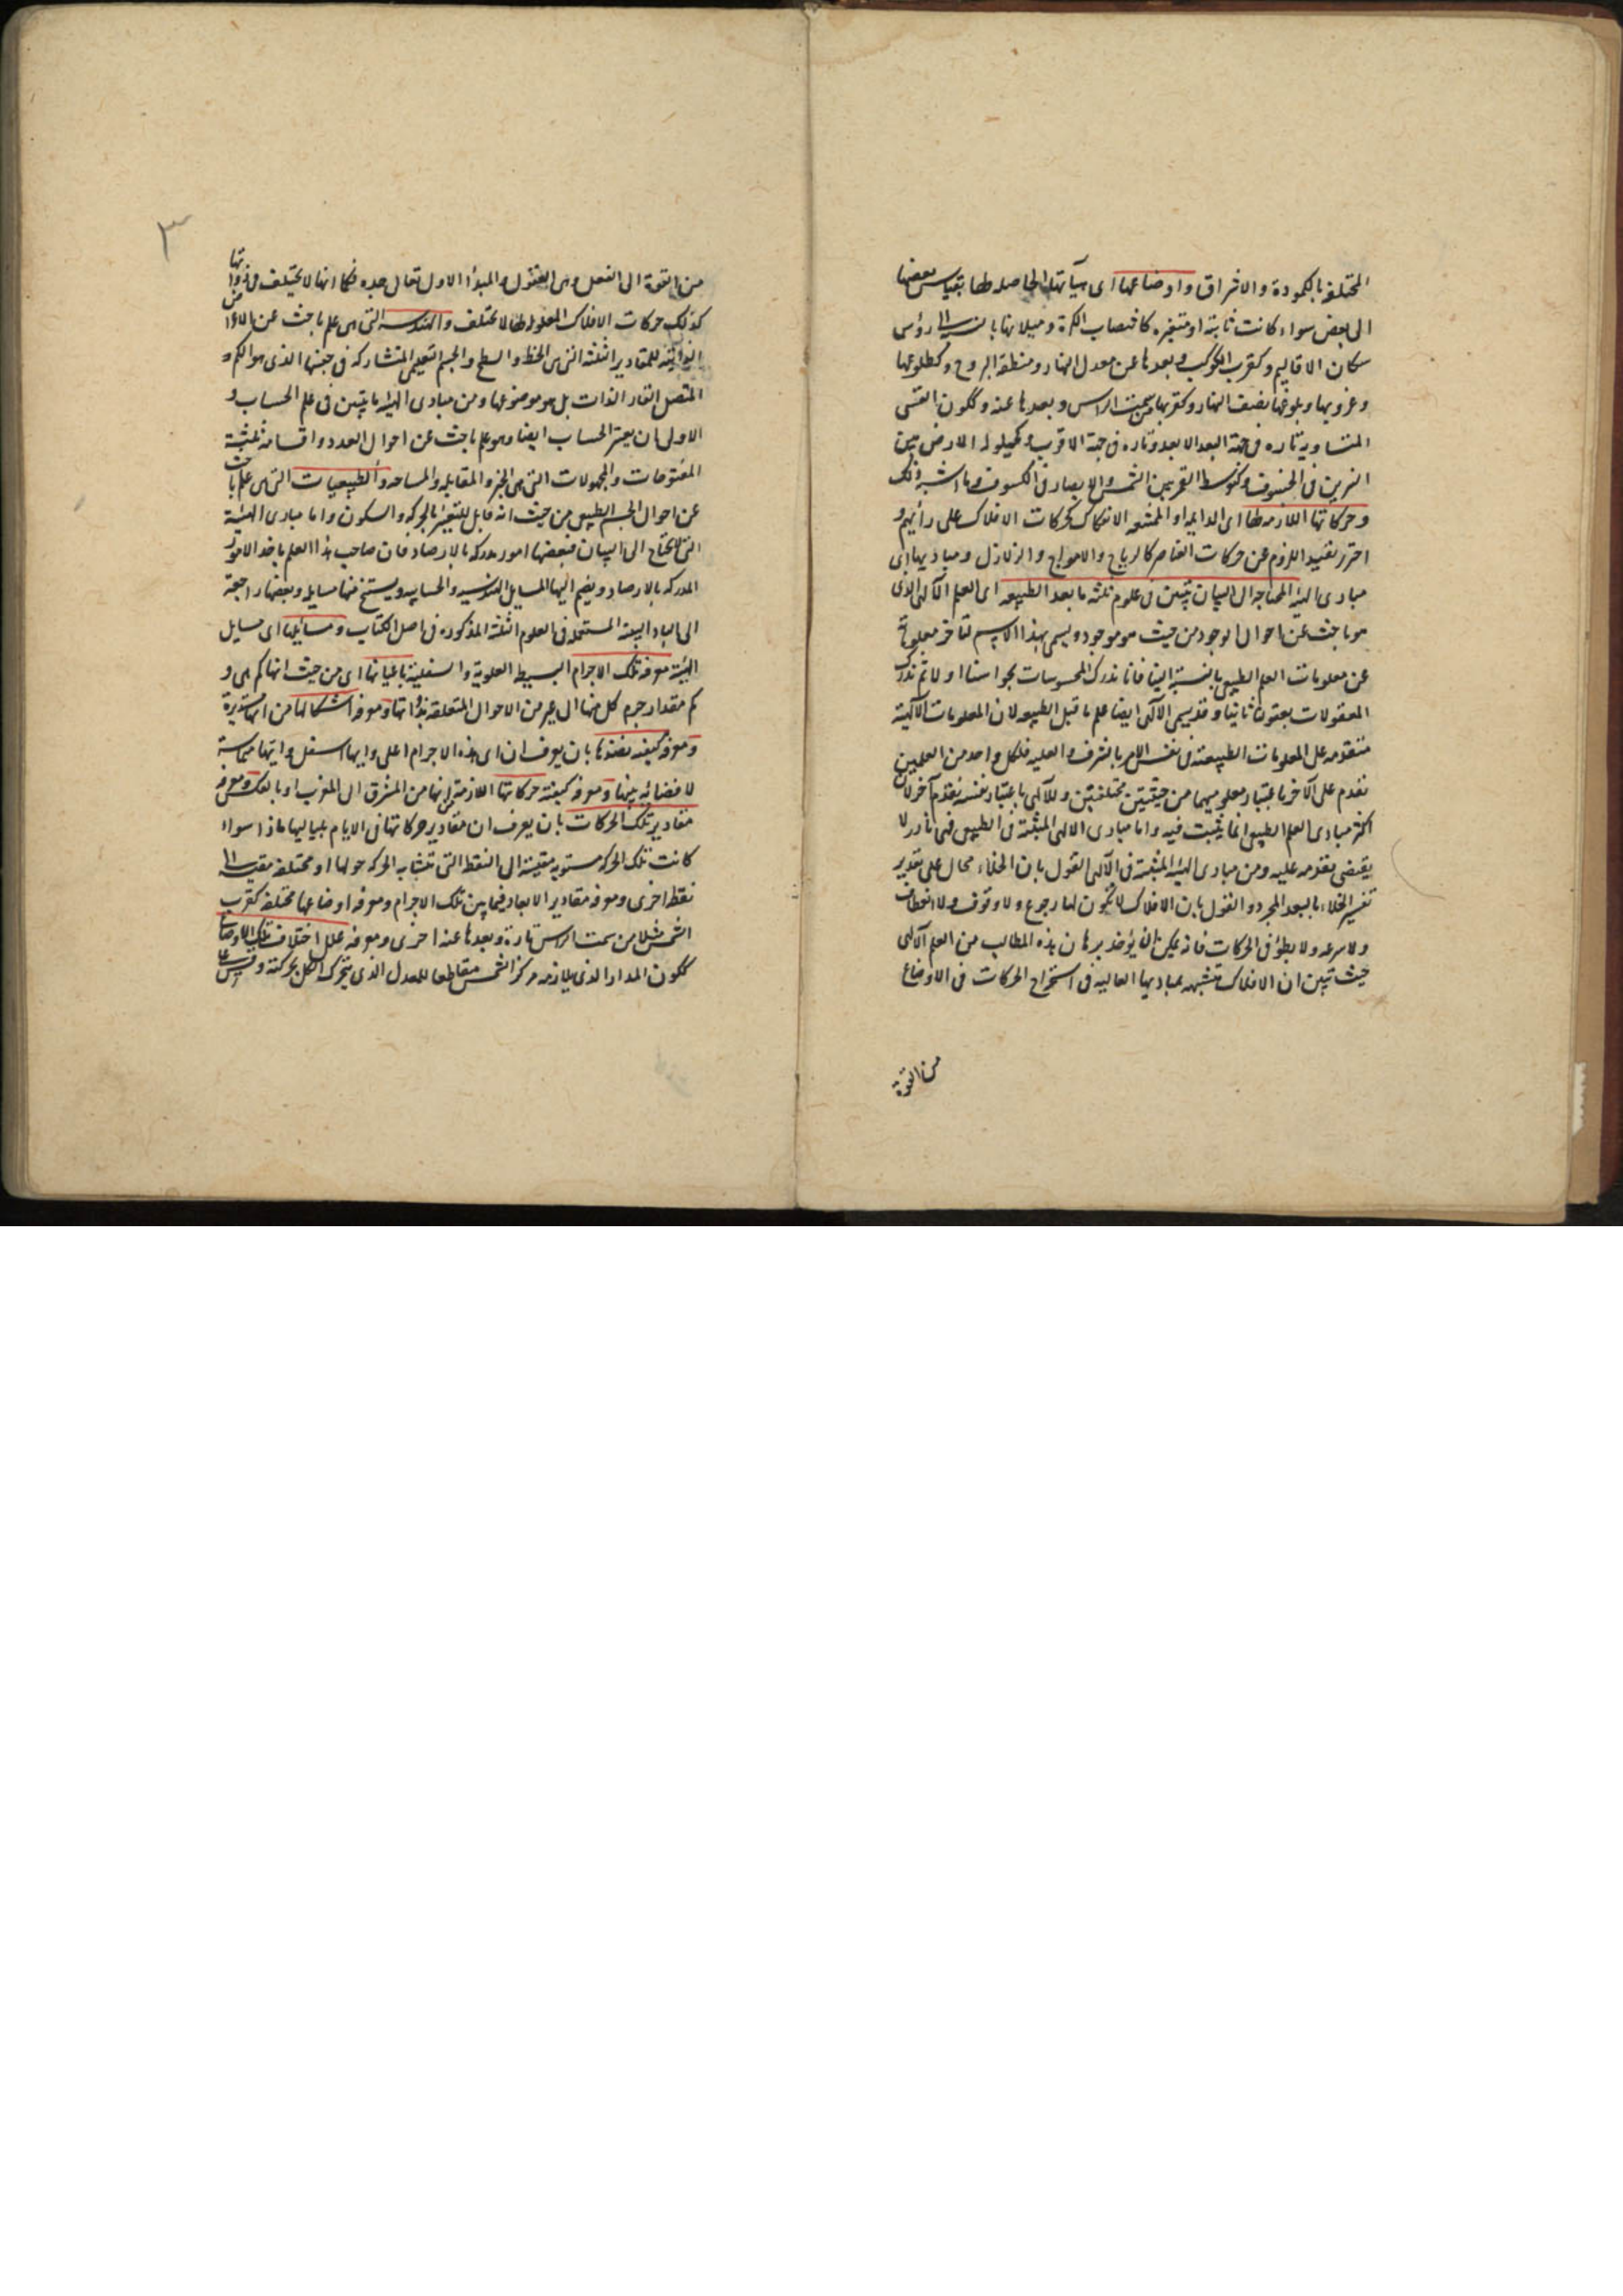 المختلفة بالكمودة والاشراق واوضاعها اى هيآتها الحاصلة لها بقياس بعضها
الى بعض سواء كانت ثابتة او متغيره كانتصاب الكرة وميلانها بالنسبة الى رؤس
سكان الاقاليم وكقرب الكواكب وبعدها عن معدل النهار ومنطقة البروج وكطلوعها
وغروبها وبلوغها نصف النهار وكقربها من سمت الراس وبعدها عنه وككون القسى
المتساوية تاره فى جهة البعد الابعد وتاره فى جهة الاقرب وكحيلولة الارض بين
النيرين فى الخسوف وكتوسط القمر بين الشمس والابصار فى الكسوف وما اشبه ذلك
وحركاتها اللازمة لها اى الدايمة او الممتنعة الانفكاك كحركات الافلاك على رأيهم و
احترز بقيد اللزوم عن حركات العناصر كالرياح والامواج والزلازل ومباديها اى
مبادى الهيئة المحتاجة الى البيان تتبين فى علوم ثلثه ما بعد الطبيعه اى العلم الآلهى الذى
هو باحث عن احوال الوجود من حيث هو موجود ويسمى بهذا الاسم لتاخر معلوماته
عن معلومات العلم الطبيعى بالنسبة الينا فانا ندرك المحسوسات بحواسنا اولا ثم ندرك
المعقولات بعقولنا ثانيا وقد يسمى الآلهى ايضا علم ما قبل الطبيعه لان المعلومات الآلهية
متقدمه على المعلومات الطبيعية فى نفس الامر بالشرف والعلية فلكل واحد من العلمين
تقدم على الآخر باعتبار معلوميهما من حيثيتين مختلفتين وللآلهى باعتبار نفسه تقدم آخر لان
اكثر مبادى العلم الطبيعى انما يثبت فيه واما مبادى الالهى المبينة فى الطبيعى فهى نادرة لا
يقتضى تقدمه عليه ومن مبادى الهيئة المثبتة فى الآلهى القول بان الخلاء محال على تقدير
تفسير الخلاء بالبعد المجرد والقول بان الافلاك لا تكون لها رجوع ولا وقوف ولا انعطاف
ولا سرعه ولا بطؤ فى الحركات فانه يمكن ان يؤخذ برهان هذه المطالب من العلم الآلهى
حيث تبين ان الافلاك متشبهه بمباديها العاليه فى استخراج الحركات فى الاوضاع
من القوة
٣
من القوة الى الفعل وهى العقول والمبدأ الاول تعالى جده فكما انها لا يختلف فى ذواتها
كذلك حركات الافلاك المعلولة لها لا تختلف والهندسه التى هى علم باحث عن الاعراض
الذاتية للمقادير الثلثة التى هى الخط والسطح والجسم التعليمى المتشاركه فى جنسها الذى هو الكم
المتصل القار الذات بل هو موضوعها ومن مبادى الهيئة ما يتبين فى علم الحساب و
الاولى ان يعتبر الحساب ايضا وهو علم باحث عن احوال العدد واقسامه ثلثة
المفتوحات والمجهولات التى هى الجبر والمقابله والمساحه والطبيعيات التى هى علم باحث
عن احوال الجسم الطبيعى من حيث انه قابل للتغير بالحركه والسكون واما مبادى الهيئة
التى لا يحتاج الى البيان فبعضها امور مدركه بالارصاد فان صاحب هذا العلم ياخذ الامور
المدركه بالارصاد ويضم اليها المسايل الهندسيه والحسابيه ويستنتج منها مسايله وبعضها راجعة
الى المبادى البينة المستعملة فى العلوم الثلثة المذكوره فى اصل الكتاب ومسائلها اى مسايل
الهيئة معرفة تلك الاجرام البسيطه العلوية والسفلية باعيانها اى من حيث انها كم هى و
كم مقدار جرم كل منها الى غير من الاحوال المتعلقه بذواتها ومعرفه اشكالها من انها مستديرة
ومعرفه كيفية نضدها بان يعرف ان اى هذه الاجرام اعلى وايها اسفل وايتها مماسة
لا فضاء بينها ومعرفه كيفية حركاتها اللازمة من انها من المشرق الى المغرب او بالعكس ومعرفه
مقادير تلك الحركات بان يعرف ان مقادير حركاتها فى الايام بلياليها ماذا سواء
كانت تلك الحركه مستويه مقيسة الى النقط التى تتشابه الحركه حولها او مختلفه مقيسه الى
نقط اخرى ومعرفه مقادير الابعاد فيما بين تلك الاجرام ومعرفه اوضاعها مختلفه كقرب
الشمس مثلا من سمت الراس تارة وبعدها عنه اخرى ومعرفه علل اختلاف تلك الاوضاع
ككون المدار الذى يلازمه مركز الشمس مقاطعا للمعدل الذى يتحرك الكل بحركته